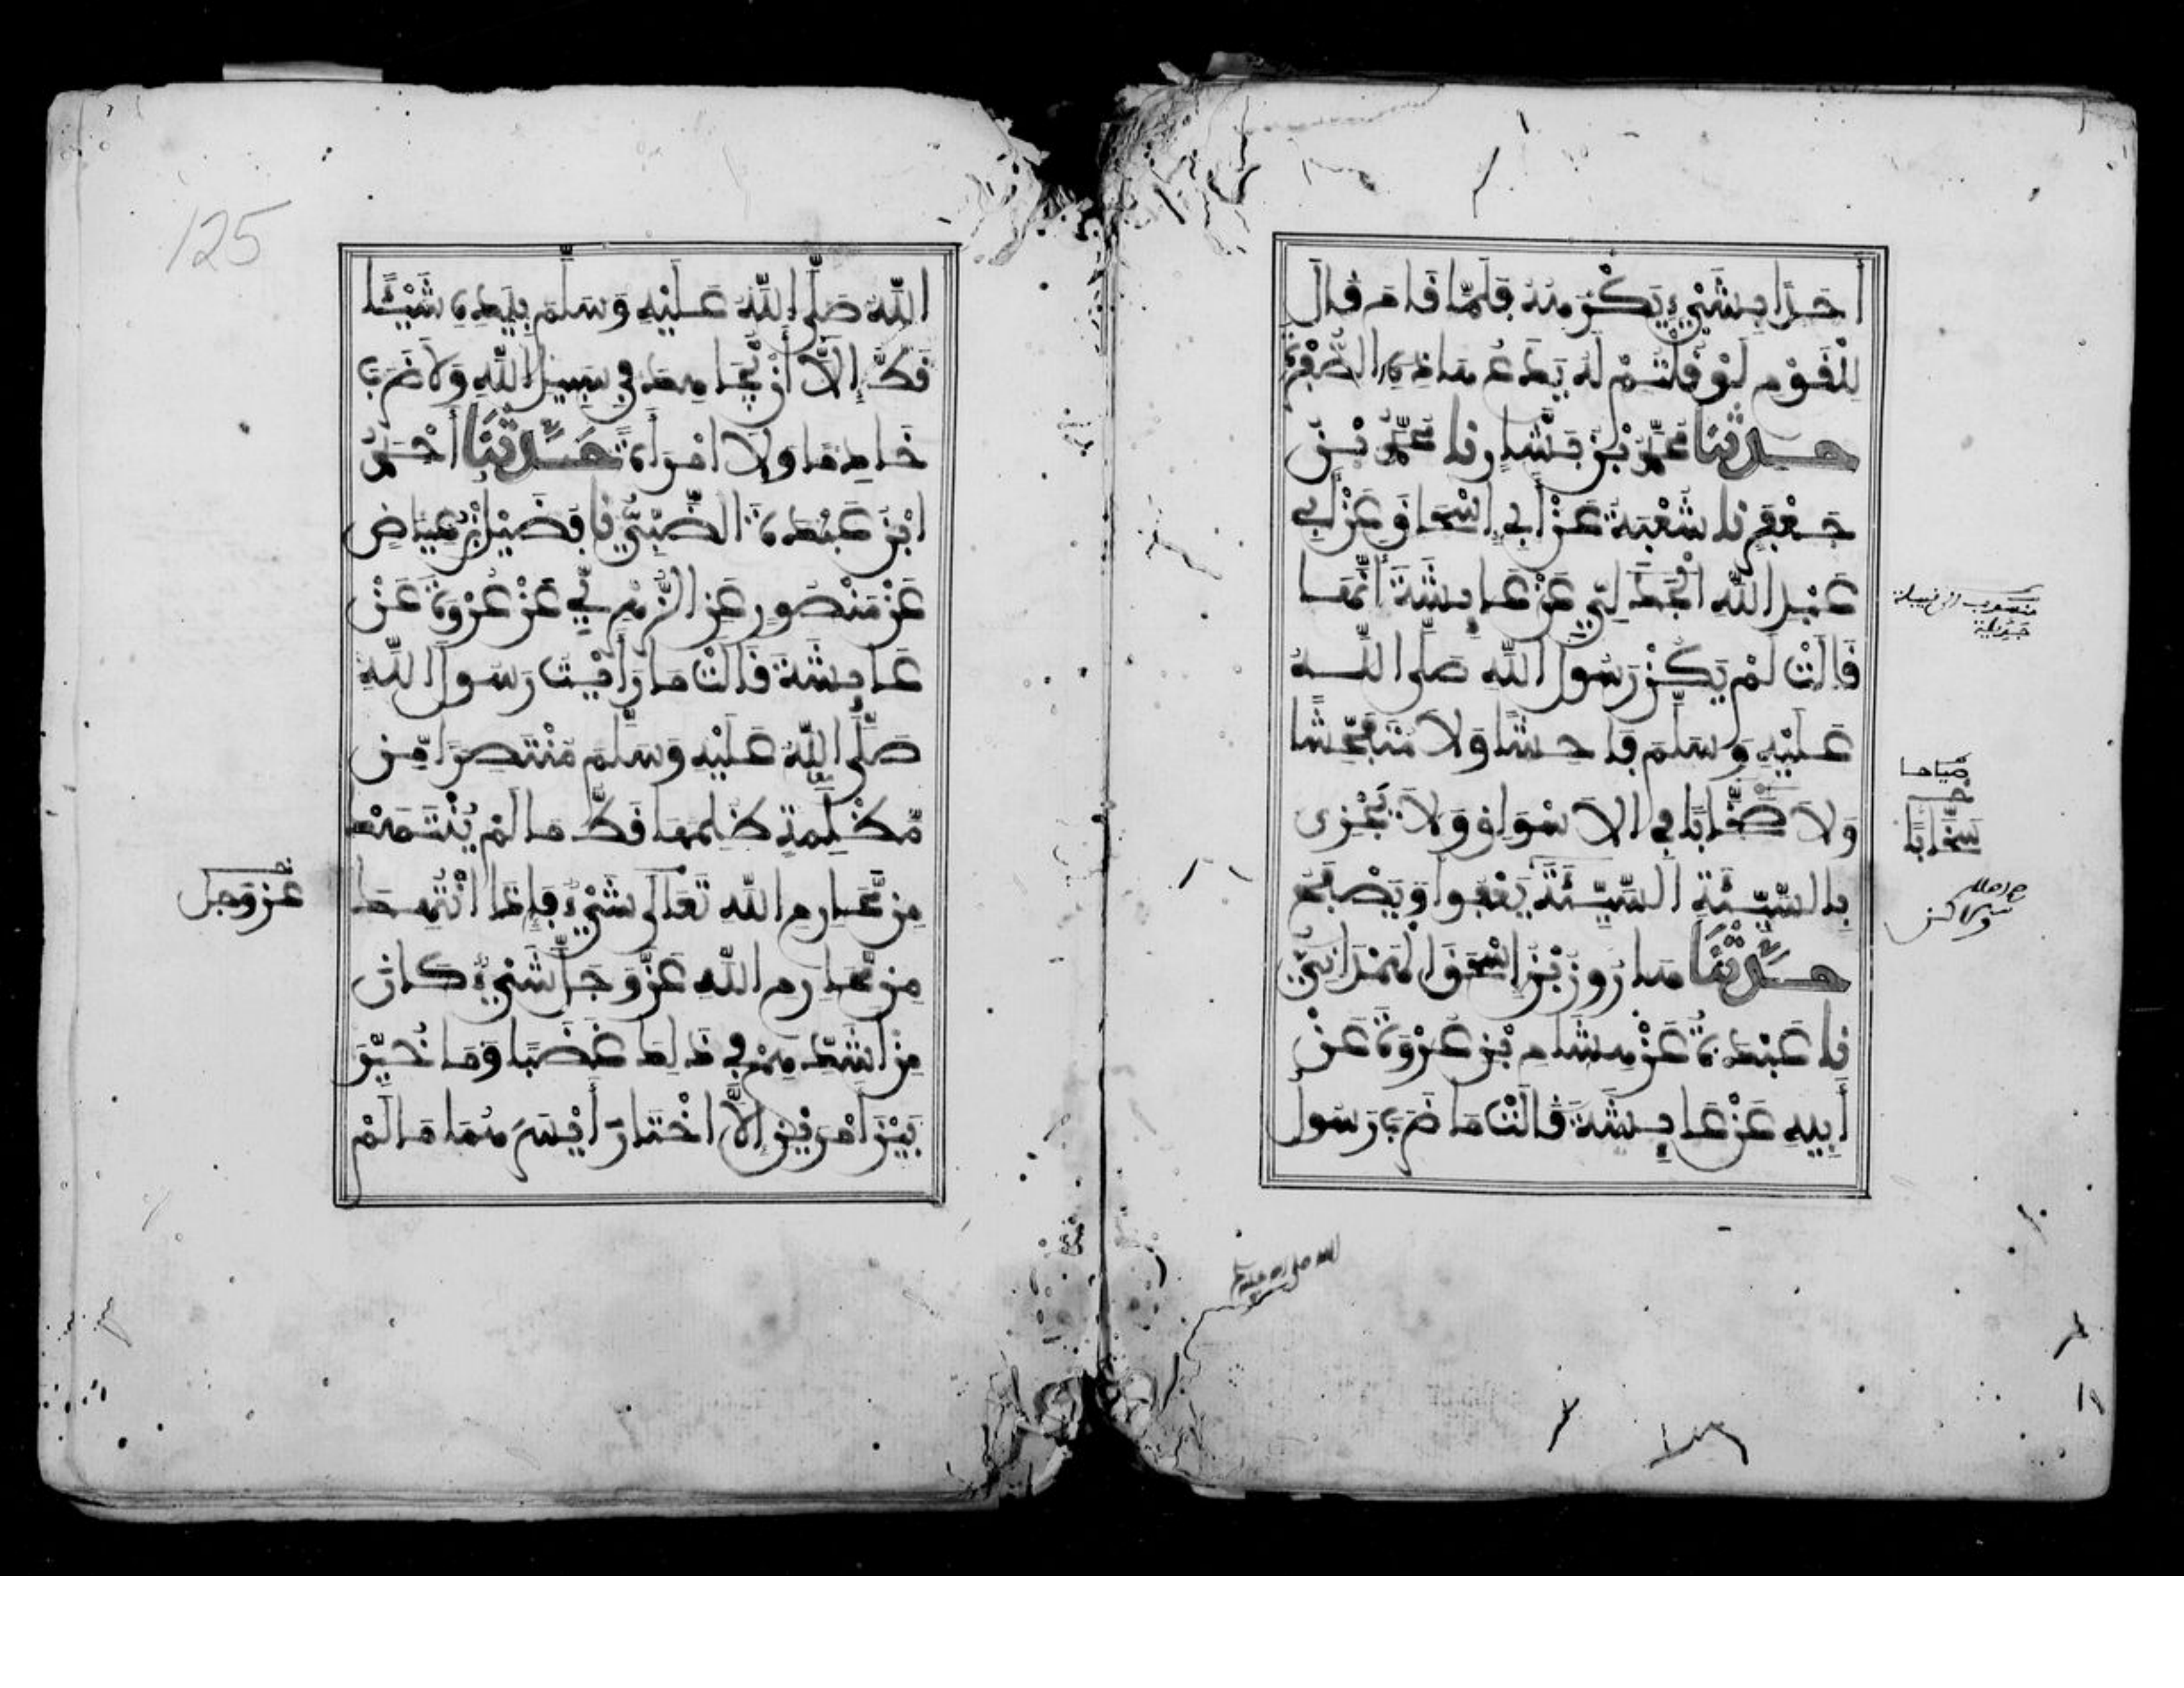 أحدا بشيء يكرهه فلما قام قال
للقوم لو قلتم له يدع هاذه الصفرة
حدثنا محمد بن بشار نا محمد بن
جعفر نا شعبة عن أبي إسحاق عن أبي
عبد الله الجدلي عن عايشة أنها
قالت لم يكن رسول الله صلى الله
عليه وسلم فاحشا ولا متفحشا
ولا صخابا في الاسواق ولا يجزي
بالسيئة السيئة يعفوا ويصفح
حدثنا هارون بن إسحق الهمداني
نا عبدة عن هشام بن عروة عن
أبيه عن عايشة قالت ما ضرب رسول
صياحا
سخابا
ولاكن
الله صلى الله عليه وسلم بيده شيئا
قط إلا أن يجاهد في سبيل الله ولا ضرب
خادما ولا امرأة حدثنا أحمد
ابن عبدة الضبي نا فضيل بن عياض
عن منصور عن الزهري عن عروة عن
عايشة قالت ما رأيت رسول الله
صلى الله عليه وسلم منتصرا من
مظلمة ظلمها قط ما لم ينتهك
من محارم الله تعالى شيء فإذا انتهك
من محارم الله عز وجل شيء كان
من اشدهم في ذلك غضبا وما خير
بين امرين إلا اختار أيسرهما ما لم
عز وجل
125